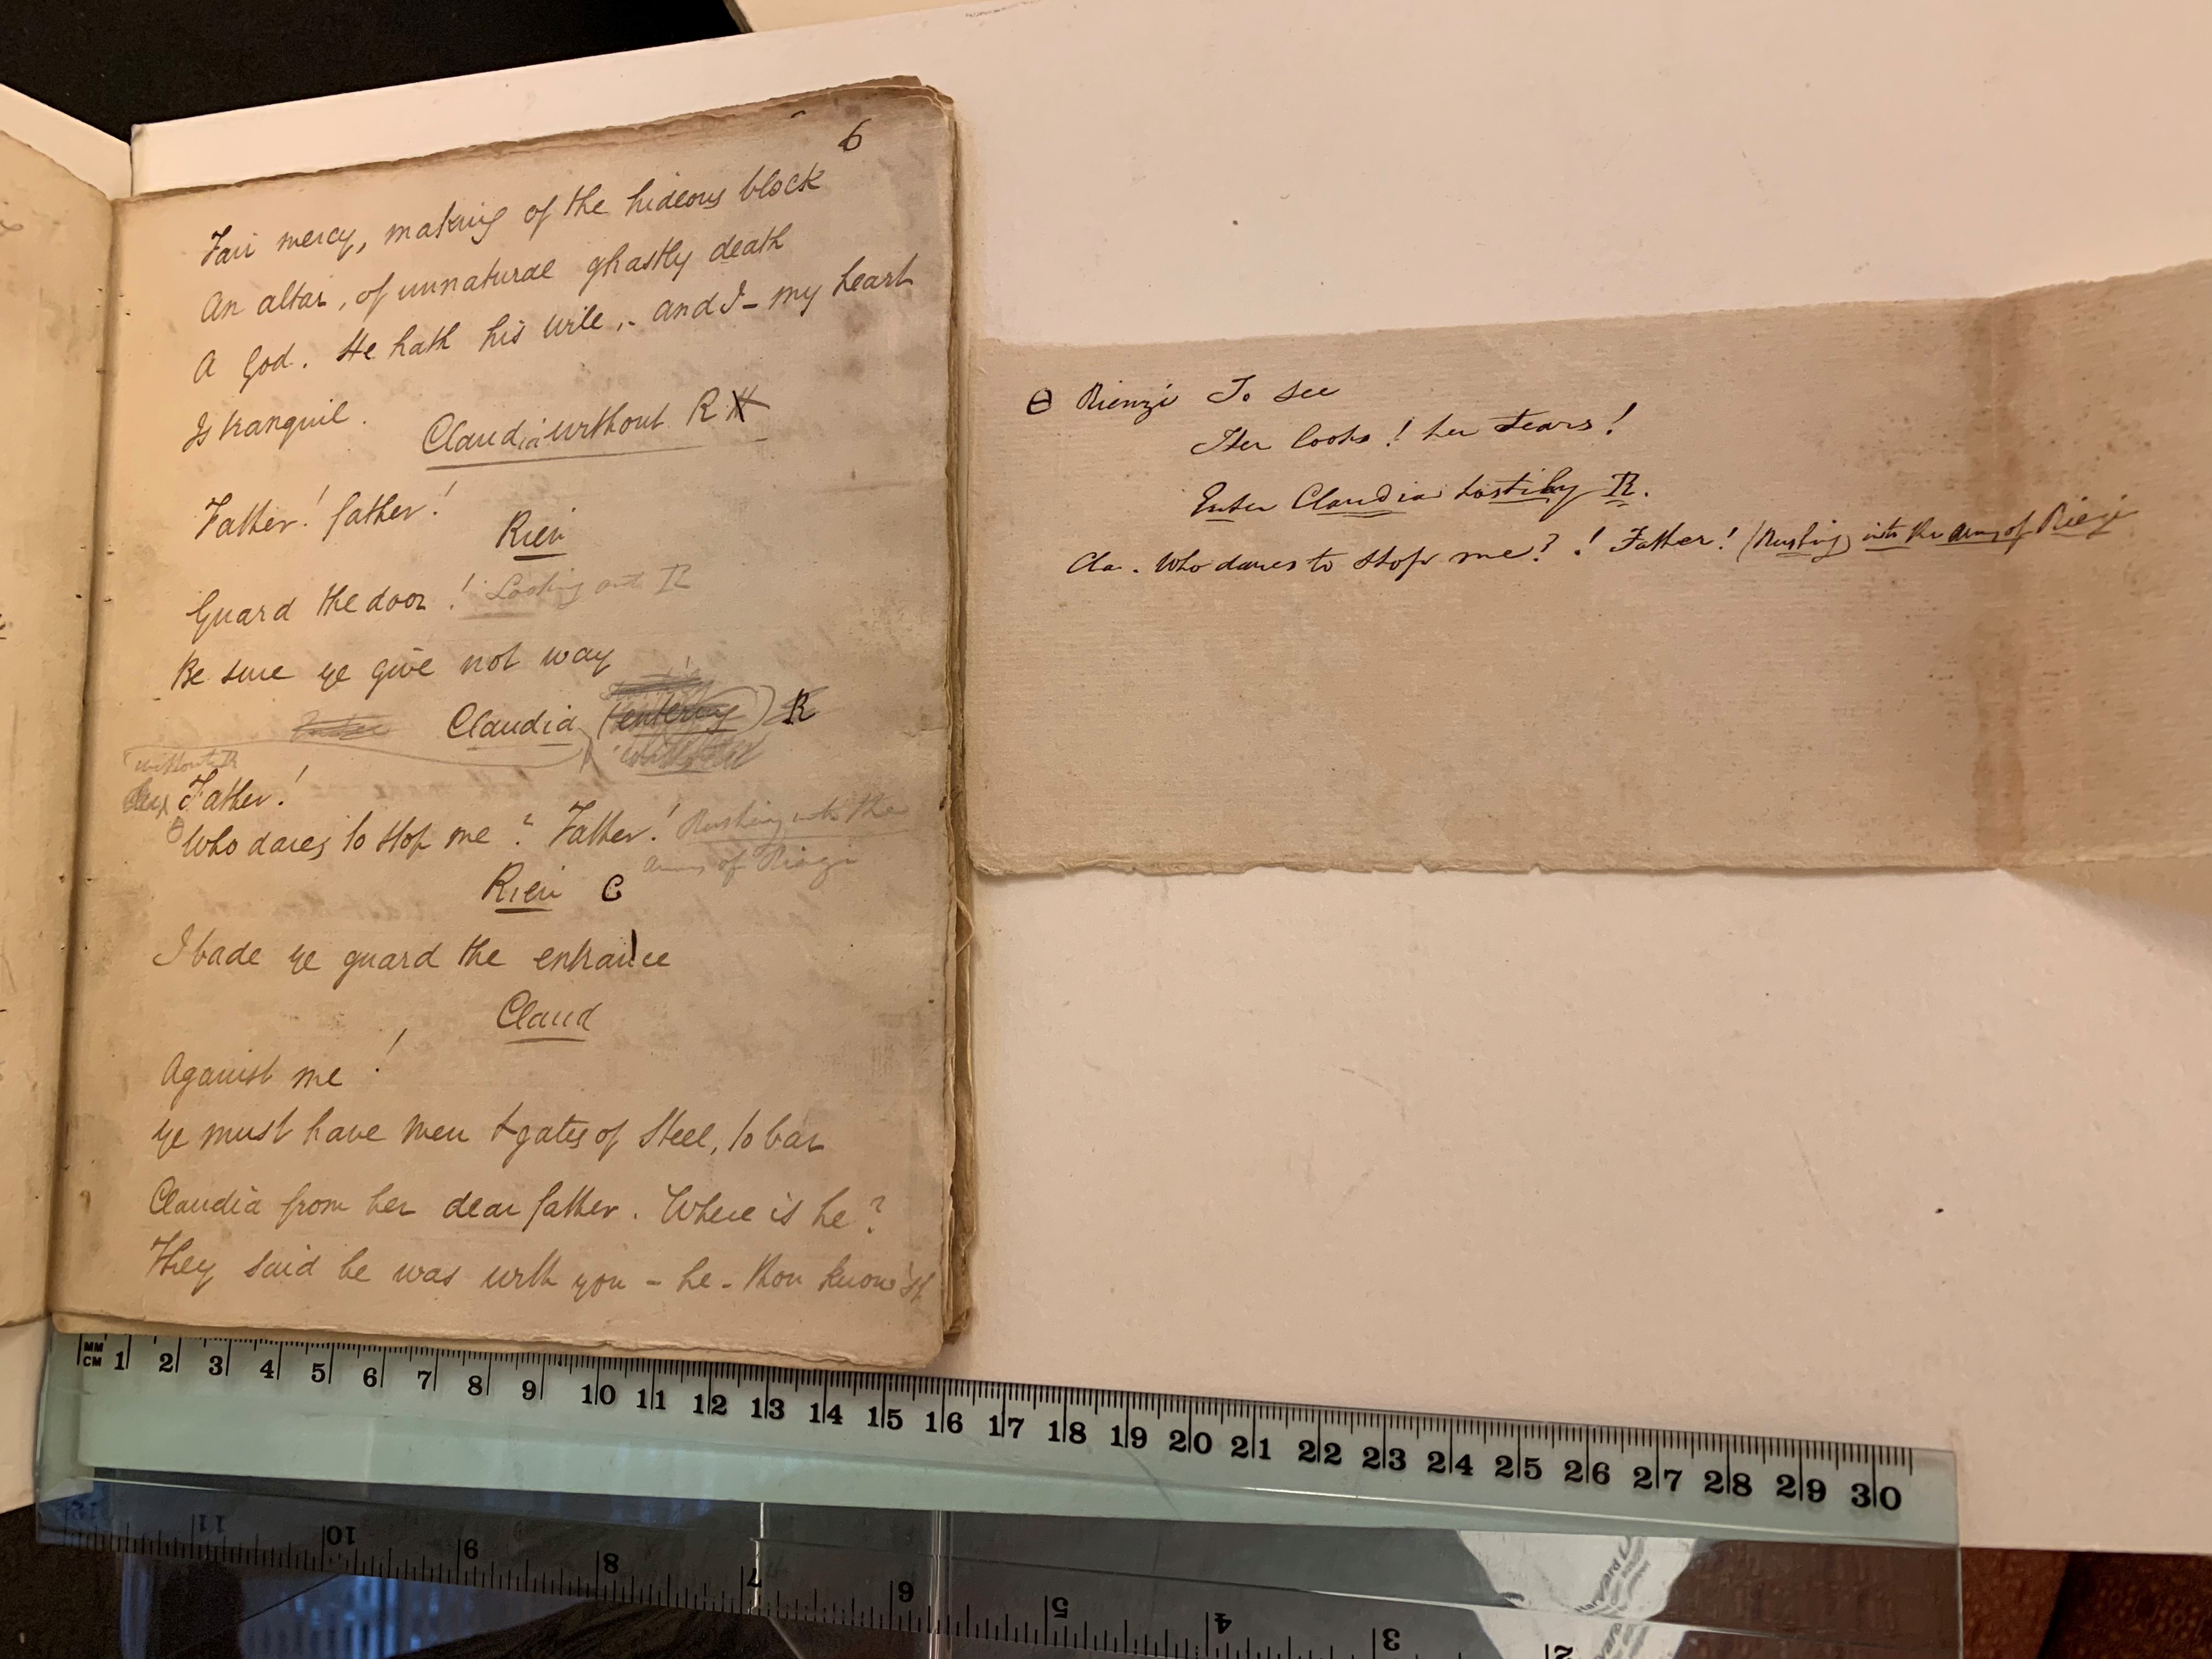 6
Fair mercy, making of the hideous block
An altar, of unnatural ghastly death
A God. He hath his will, - and I - my heart
Is tranquil.
Claudia without R
Father! father!
Rien
Guard the door! Looking out R
Be sure ye give not way
Claudia (entering) R
without R
Father!
Who dares to stop me? Father! Rushing into the
arms of Rienzi
Rien C
I bade ye guard the entrance
Claud
Against me!
Ye must have men & gates of Steel, to bar
Claudia from her dear father. Where is he?
They said he was with you - he - thou know'st
Rienzi To see
Her looks! her tears!
Enter Claudia hastily R.
Cla. Who dares to stop me? ! Father! (Rushing into the arms of Rienzi
MM
CM 1 2 3 4 5 6 7 8 9 10 11 12 13 14 15 16 17 18 19 20 21 22 23 24 25 26 27 28 29 30
11 10 9 8 7 6 5 4 3 2